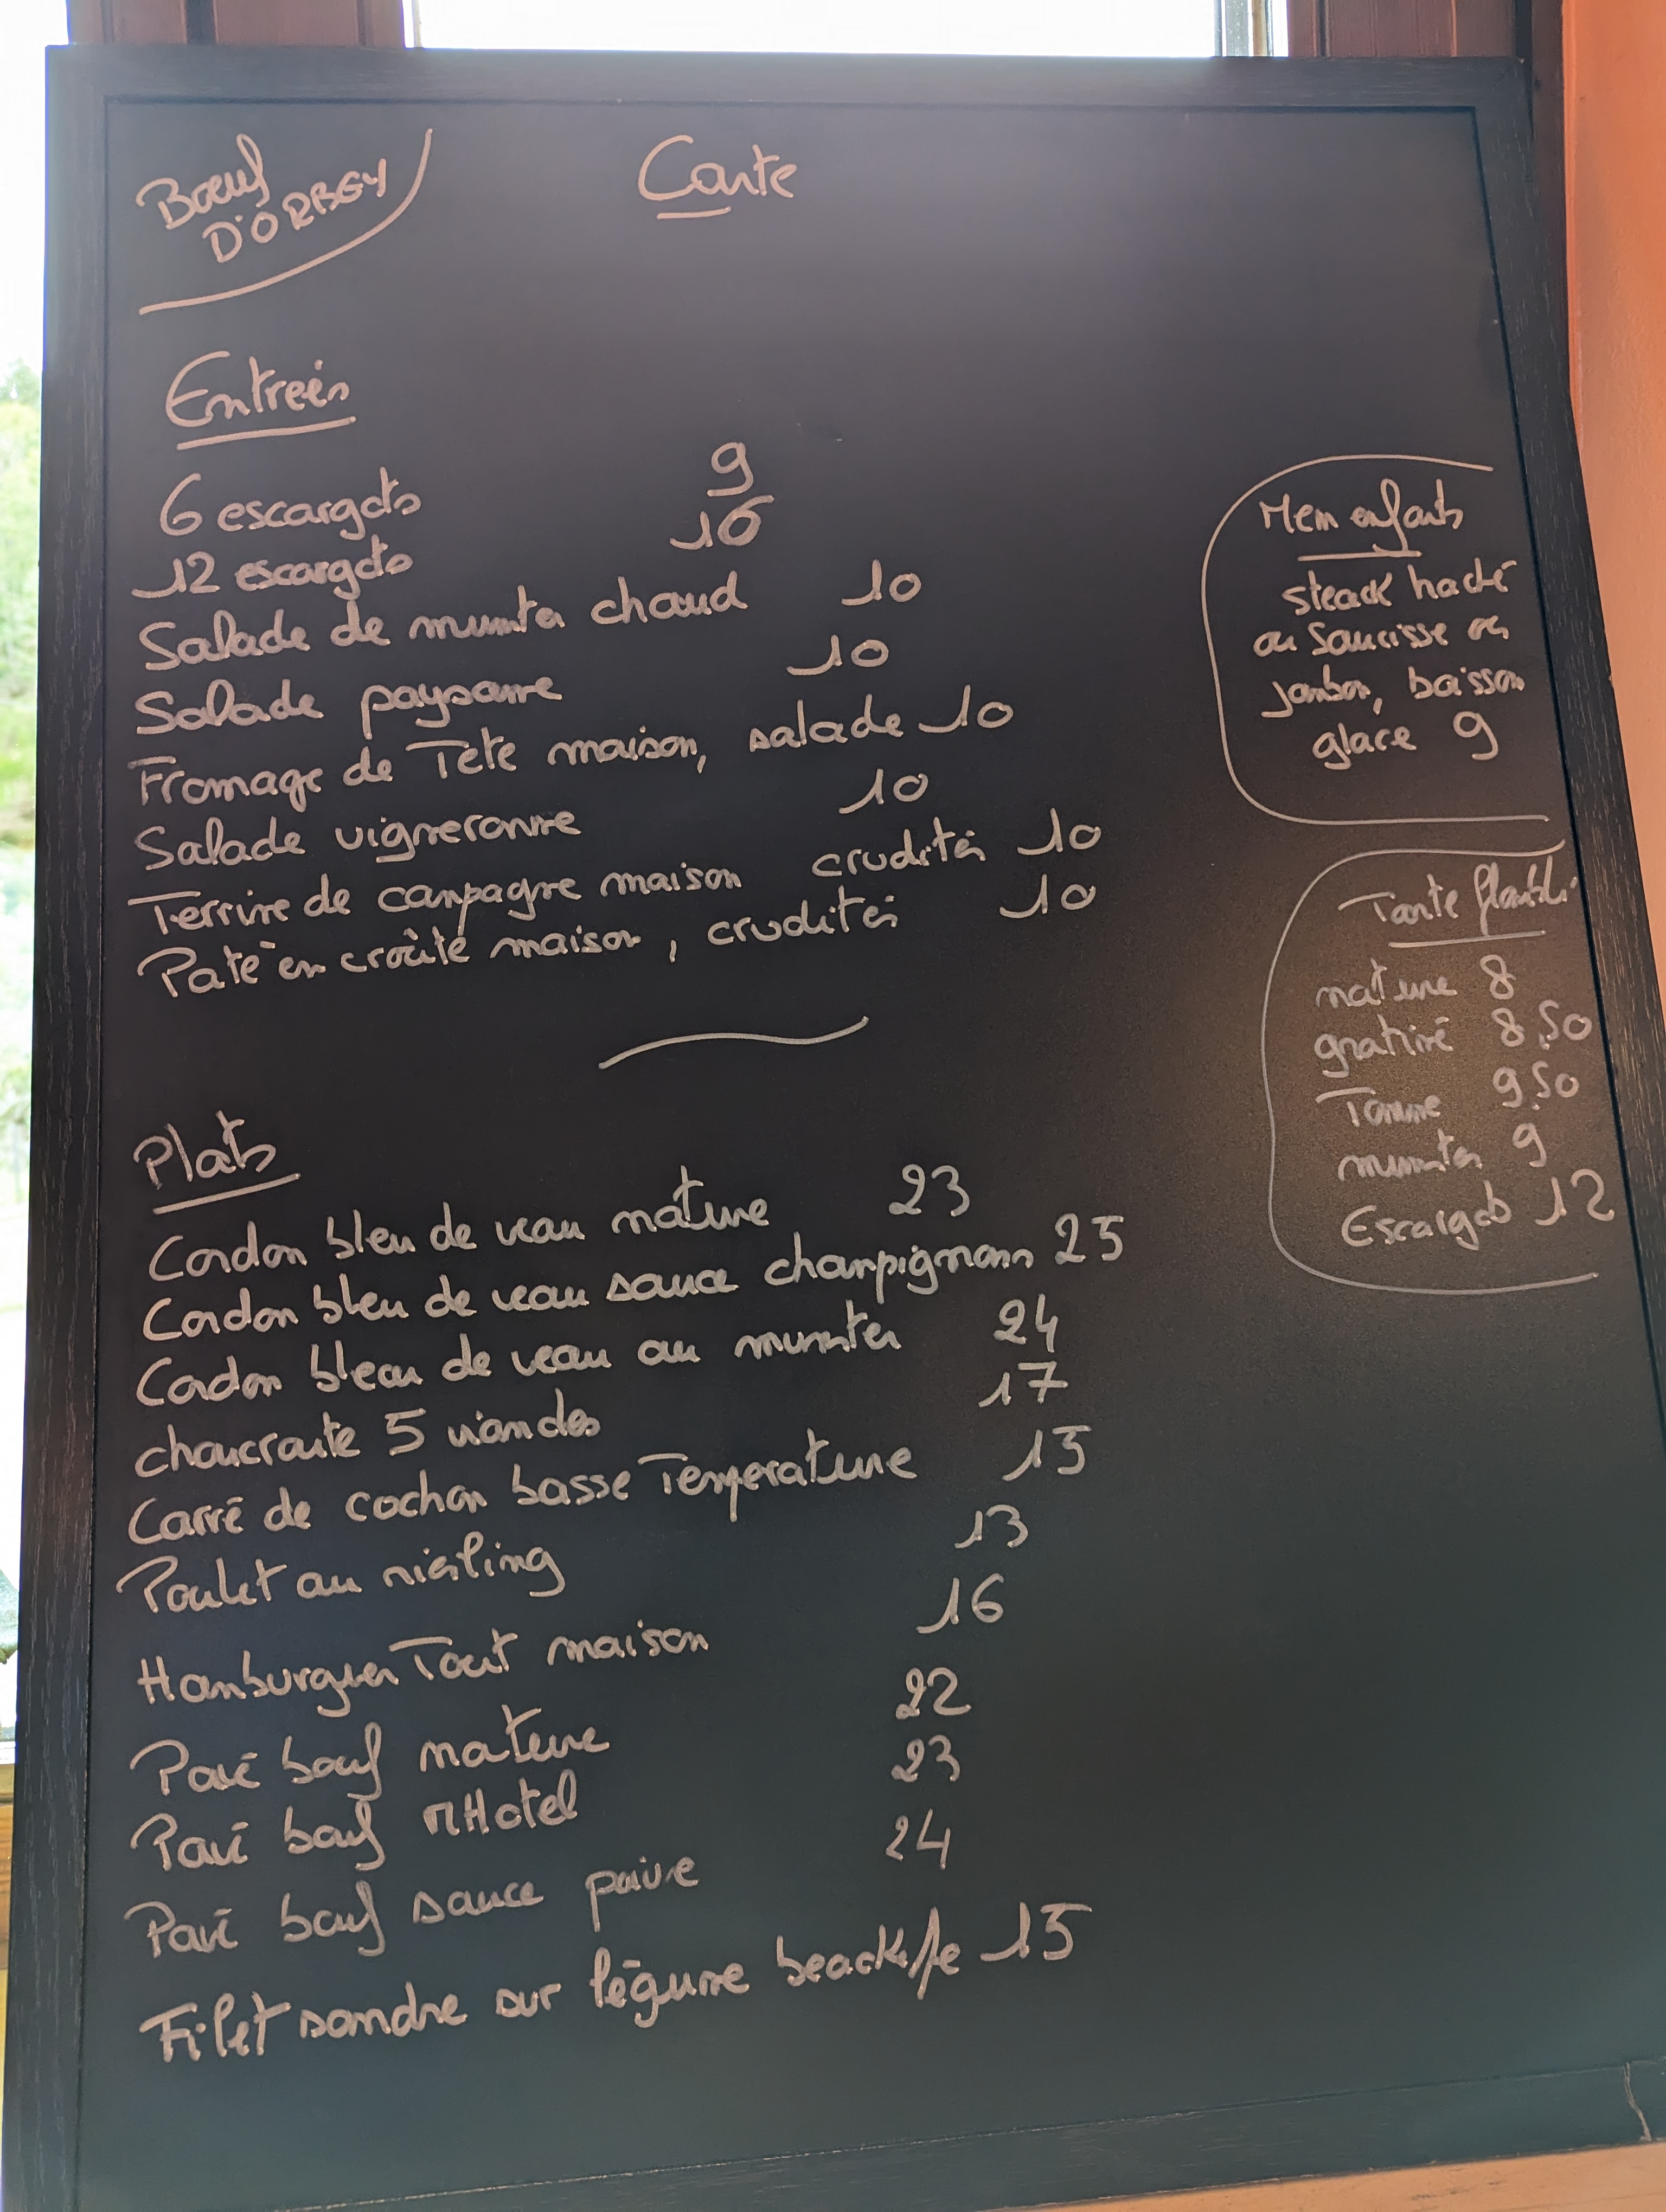 Bœuf
D'ORBEY
Carte
Entrées
6 escargots 9
12 escargots 16
Salade de munster chaud 10
Salade paysanne 10
Fromage de Tete maison, salade 10
Salade vigneronne 10
Terrine de campagne maison crudités 10
Paté en croûte maison, crudités 10
Menu enfants
steack haché
ou Saucisse ou
jambon, boisson
glace 9
Tarte flambée
nature 8
gratiné 8,50
Tomme 9,50
munster 9
Escargots 12
Plats
Cordon bleu de veau nature 23
Cordon bleu de veau sauce champignons 25
Cordon bleu de veau au munster 24
choucroute 5 viandes 17
Carré de cochon basse Temperature 15
Poulet au riesling 13
Hamburguer Tout maison 16
Pavé bœuf nature 22
Pavé bœuf MHotel 23
Pavé bœuf sauce poivre 24
Filet sandre sur légume 15